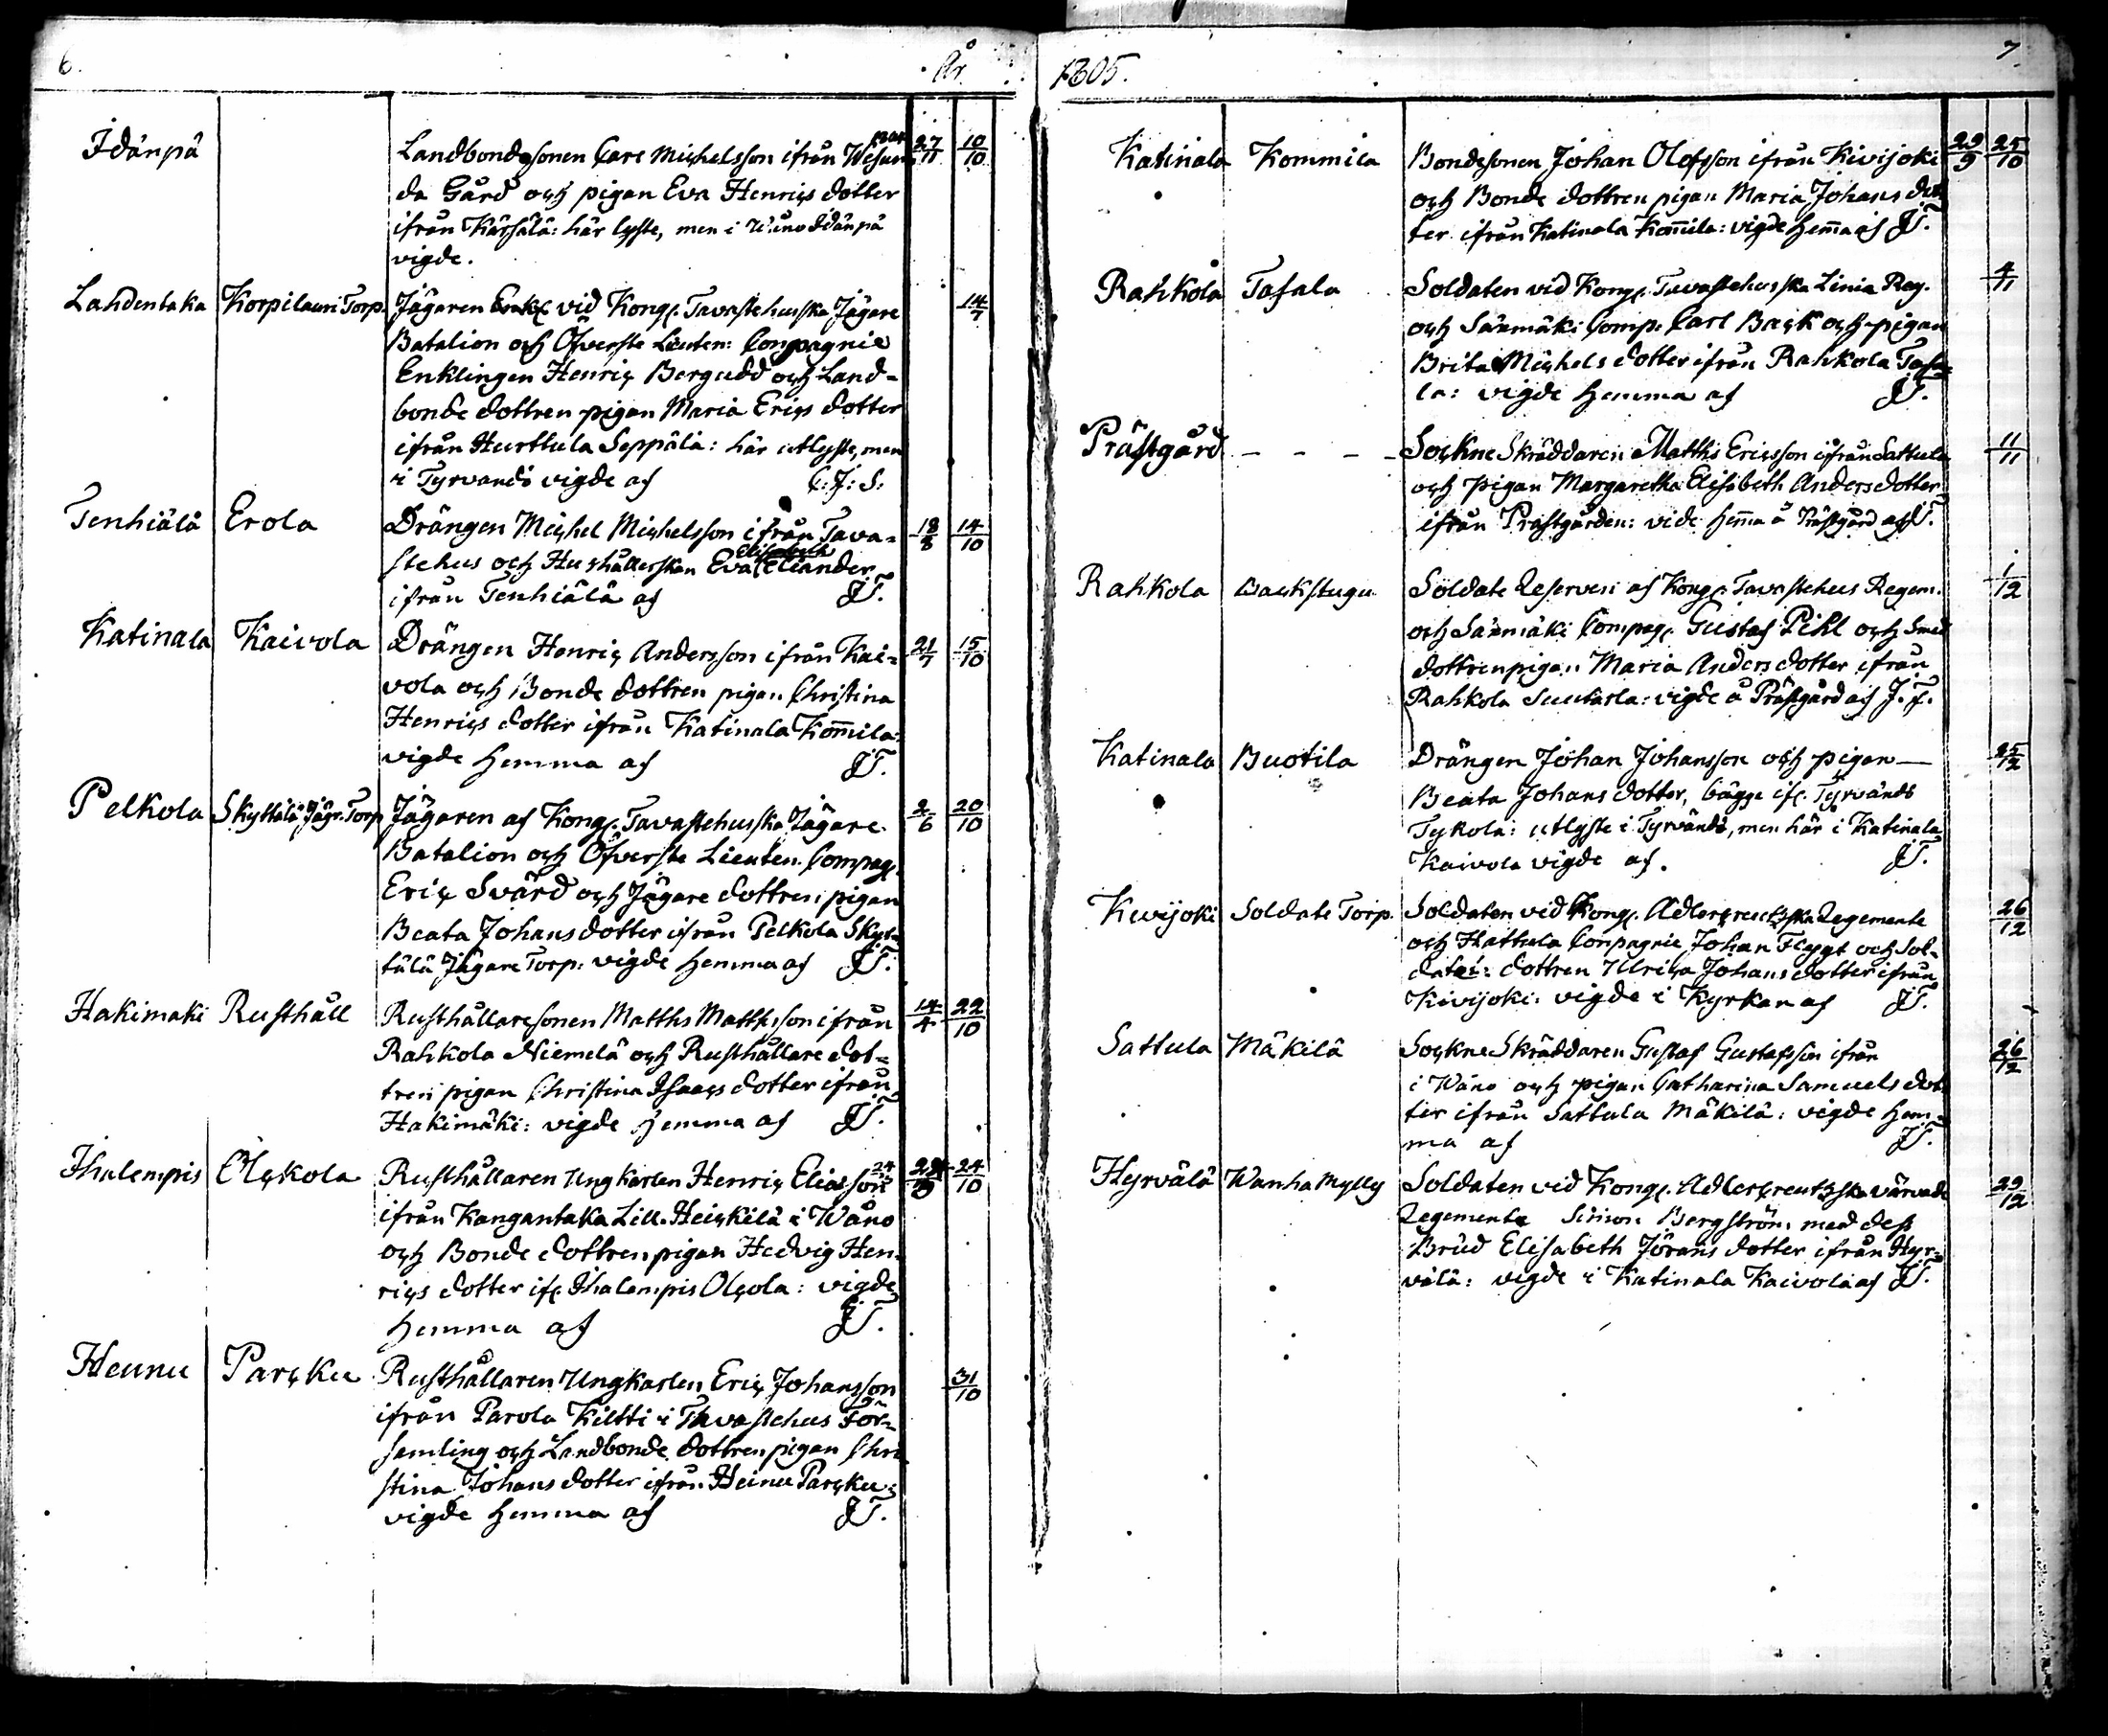 6. År
Idänpä Landbondesonen Carl Michelsson ifrån Wesun 27/11 10/10
da Gård och pigan Eva Henrics dotter
ifrån Kärsälä: här lyste, men i Wåno Idänpä
vigde.
Lahdentaka Korpilauri Torp. Jägaren vid Kongl. Tavastehusska Jägare 14/7
Batalion och Öfverste Lieuten: Compagnie
Enklingen Henric Bergudd och Land-
bonde dottren pigan Maria Erics dotter
ifrån Hurttula Seppälä: här utlyste, men
i Tyrvändö vigde af C:J:S:
Tenhiälä Erola Drängen Michel Michelsson ifrån Tava- 18/8 14/10
Elisabeth
stehus och Hushållerskan Eva Eliander
ifrån Tenhiälä af JT.
Katinala Kaivola Drängen Henric Andersson ifrån Kai- 21/7 15/10
vola och Bonde dottren pigan Christina
Henrics dotter ifrån Katinala Kom̅ila:
vigde hemma af JT.
Pelkola Skyttälä Jägr. Torp Jägaren af Kongl. Tavastehusska Jägare 2/6 20/10
Batalion och Öfverste Lieuten. Compagn.
Eric Svärd och Jägare dottren pigan
Beata Johans dotter ifrån Pelkola Skyt-
tälä Jägare Torp: vigde hemma af JT.
Hakimaki Rusthåll Rusthållaresonen Matths Mattsson ifrån 14/4 22/10
Rahkola Niemelä och Rusthållare dot-
tren pigan Christina Isaacs dotter ifrån
Hakimäki: vigde hemma af JT.
Ihalempis Olckola Rusthållaren Ungkarlen Henric Eliasson 24/10
ifrån Kangantaka Lill. Heickilä i Wåno
och Bonde dottren pigan Hedvig Hen-
rics dotter ifr. Ihalempis Olcola: vigde
hemma af JT.
Heunu Parcku Rusthållaren Ungkarlen Eric Johansson 31/10
ifrån Parola Kiltti i Tavastehus För-
samling och Landbonde dottren pigan Chri
stina Johans dotter ifrån Heinu Parcku:
vigde hemma af JT.
1805. 7.
Katinala Kommila Bondesonen Johan Olofsson ifrån Kivijoki 29/9 25/10
och Bonde dottren pigan Maria Johans dot
ter ifrån Katinala Kom̅ila: vigde hem̅a af JT.
Rahkola Tafala Soldaten vid Kongl. Tavastehusska Linia Reg. 4/11
och Säxmäki Comp. Carl Back och pigan
Brita Michels dotter ifrån Rahkola Tafa-
la: vigde hemma af JT.
Prästgård - - - Sockne Skräddaren Matths Ericsson ifrån Sattula 11/11
och pigan Margaretha Elisabeth Anders dotter
ifrån Prästgården: vide hem̅a å Prästgård af JT.
Rahkola Backstugu Soldate Reserven af Kongl. Tavastehus Regem. 1/12
och Säxmäki Compag. Gustaf Pihl och Smed
dottren pigan Maria Anders dotter ifrån
Rahkola Suutarla: vigde å Prästgård af J.T.
Katinala Buotila Drängen Johan Johansson och pigan 25/12
Beata Johans dotter, bägge ifr. Tyrvändö
Tykola: utlyste i Tyrvändö, men här i Katinala
Kaivola vigde af. JT.
Kivijoki Soldate Torp. Soldaten vid Kongl. Adlercreutzska Regemente 26/12
och Hattula Compagnie Johan Flygt och Sol-
date: dottren Ulrica Johans dotter ifrån
Kivijoki: vigde i Kyrkan af JT.
Sattula Mäkilä Sockne Skräddaren Gustaf Gustafsson ifrån 26/12
i Wåno och pigan Catharina Samuels dot
ter ifrån Sattula Mäkilä: vigde hem-
ma af JT.
Hyrvälä Wanha Mylly Soldaten vid Kongl. Adlercreutzska värvade 29/12
Regemente Simon Bergström med dess
Brud Elisabeth Jörans dotter ifrån Hyr-
välä: vigde i Katinala Kaivola af JT.